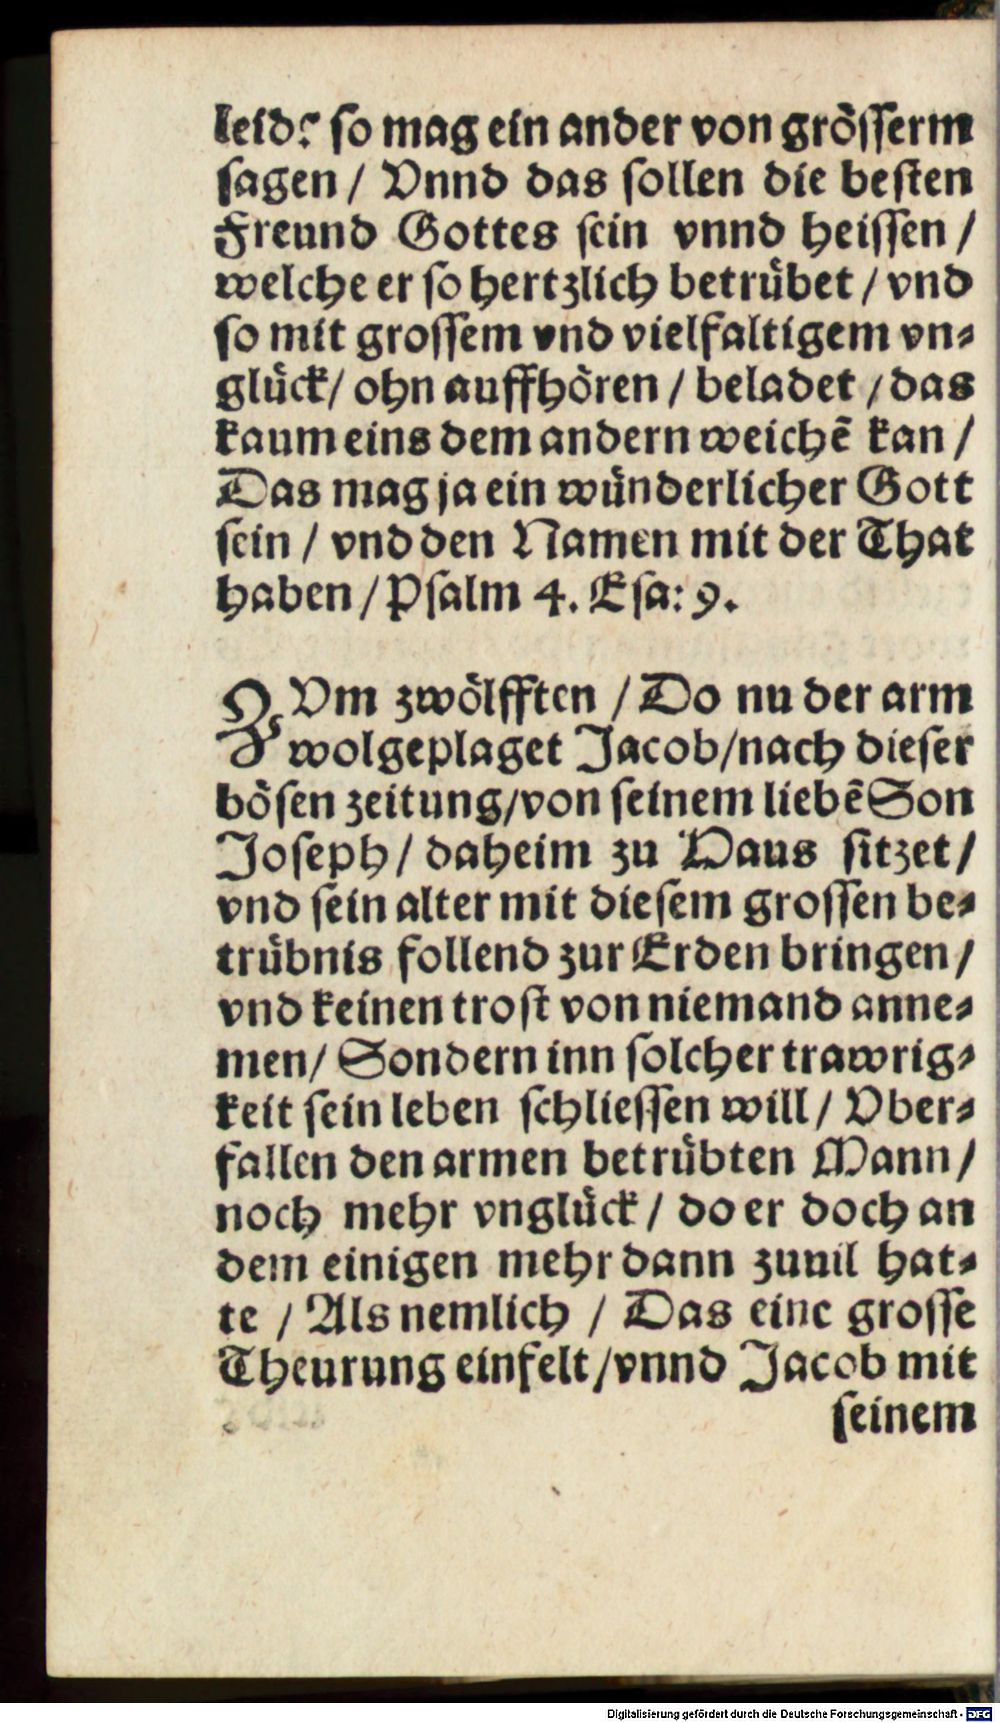 leid? so mag ein ander von grösserm
sagen / Vnnd das sollen die besten
Freund Gottes sein vnnd heissen /
welche er so hertzlich betrübet / vnd
so mit grossem vnd vielfaltigem vn-
glück / ohn auffhören / beladet / das
kaum eins dem andern weichẽ kan /
Das mag ja ein wünderlicher Gott
sein / vnd den Namen mit der That
haben / Psalm 4. Esa: 9.
ZVm zwölfften / Do nu der arm
wolgeplaget Jacob / nach dieser
bösen zeitung / von seinem liebẽ Son
Joseph / daheim zu Haus sitzet /
vnd sein alter mit diesem grossen be-
trübnis follend zur Erden bringen /
vnd keinen trost von niemand anne-
men / Sondern inn solcher trawrig-
keit sein leben schliessen will / Vber-
fallen den armen betrübten Mann /
noch mehr vnglück / do er doch an
dem einigen mehr dann zuuil hat-
te / Als nemlich / Das eine grosse
Theurung einfelt / vnnd Jacob mit
seinem
Digitalisierung gefördert durch die Deutsche Forschungsgemeinschaft - DFG